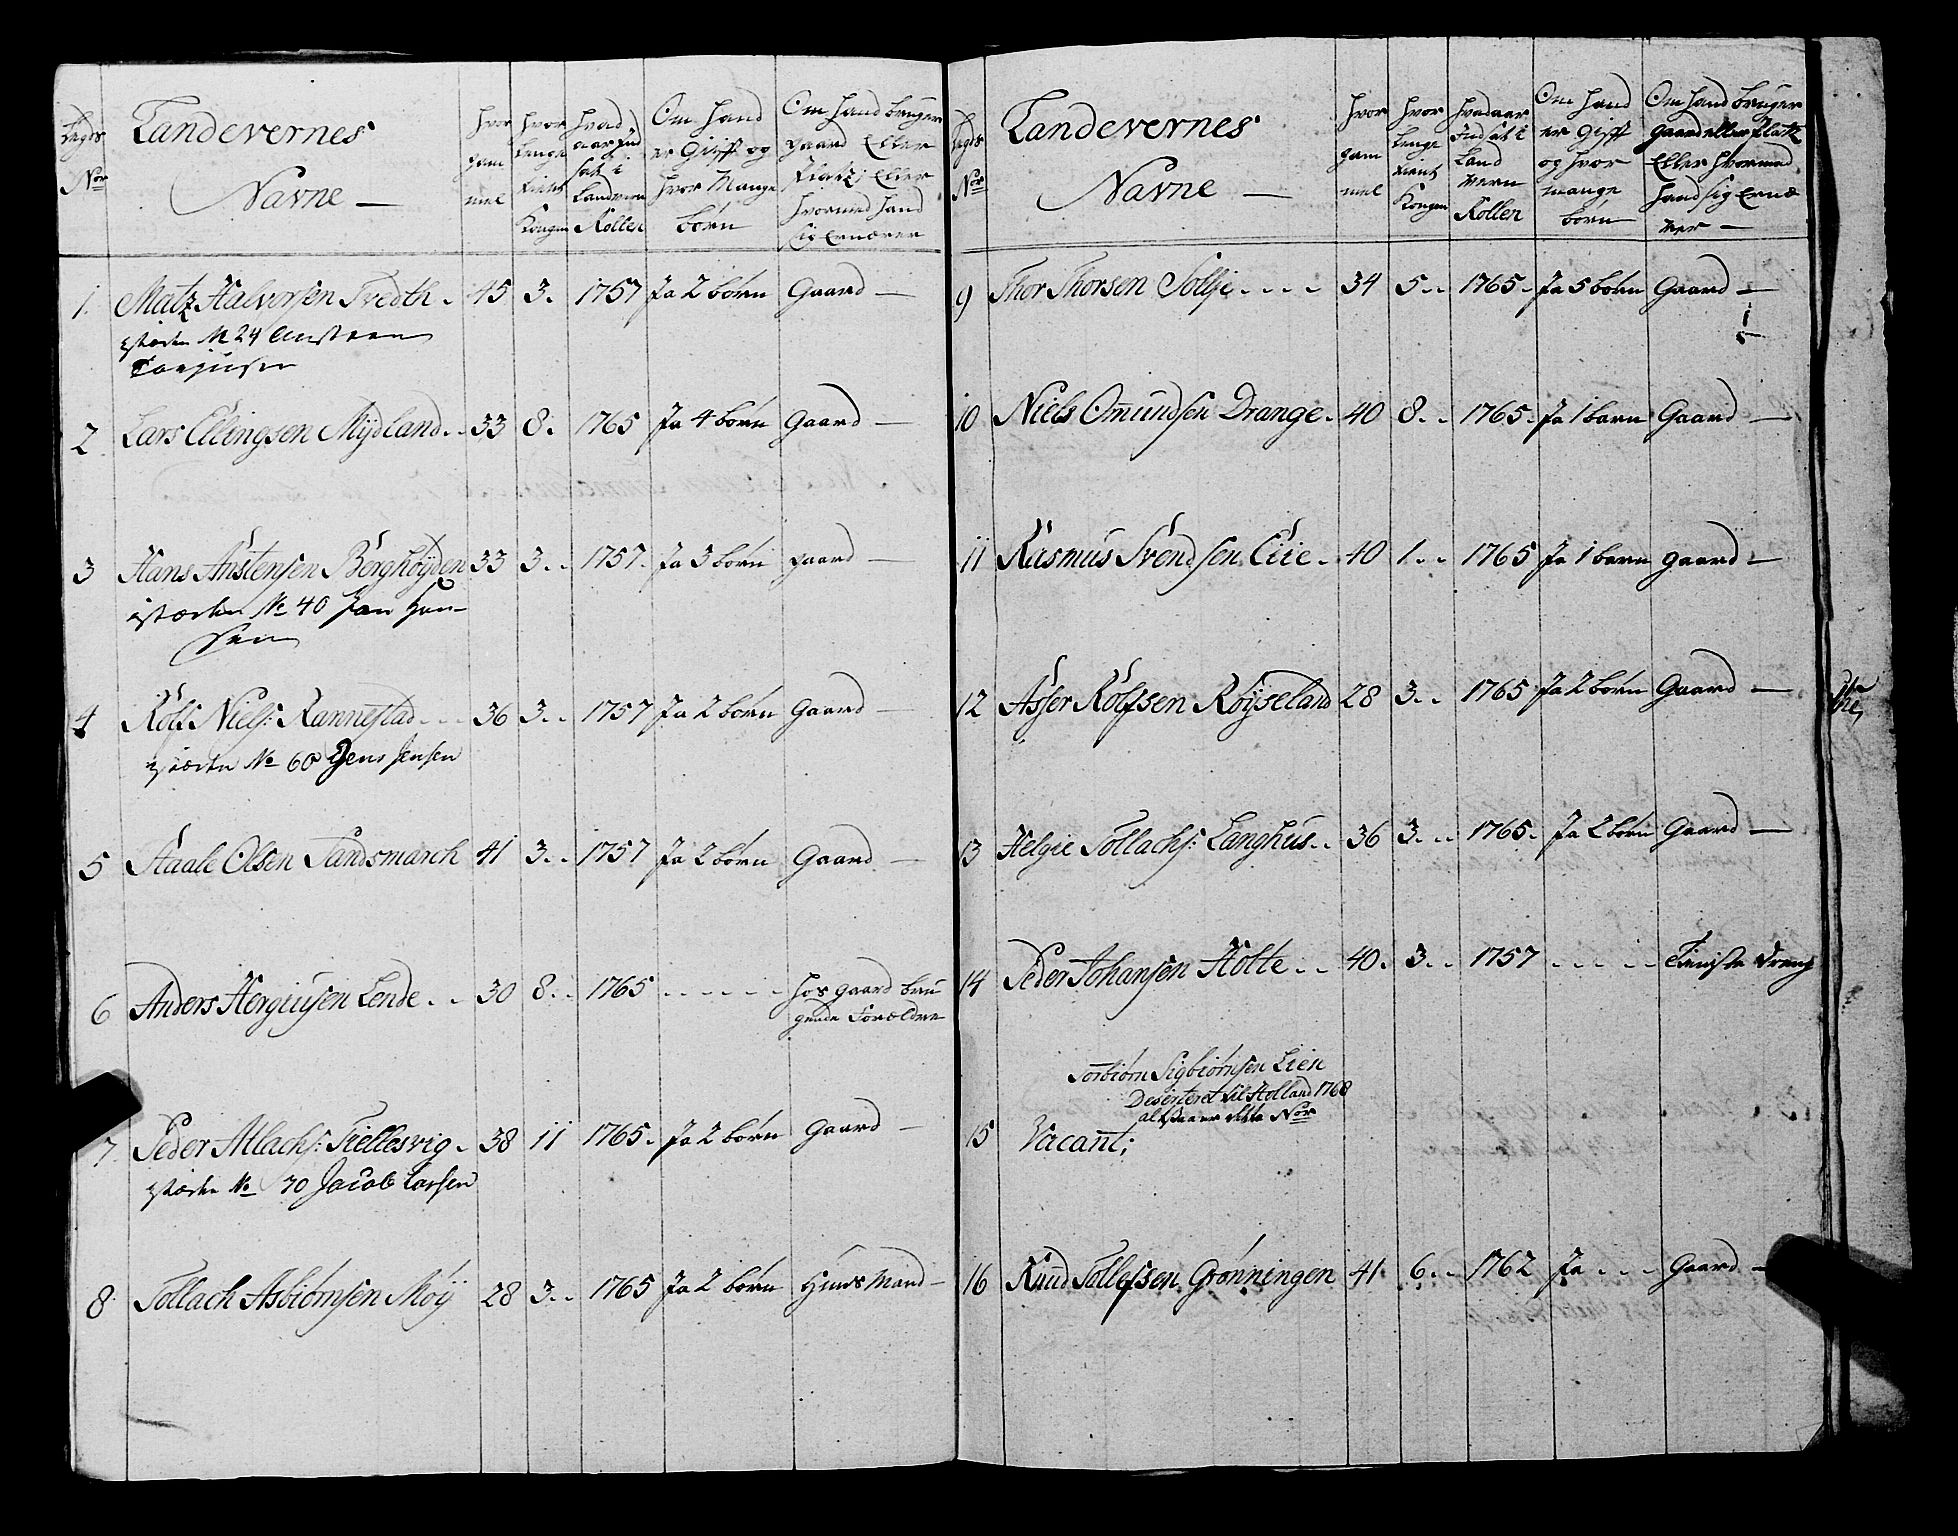 Legds Nor
Landevernes Navne —
Hvor gam mel
Hvor lenge tient Kongen
Hvad aar ind sat i Landvern Rollen
Om Hand er Gift og Hvor Mange børn
Om Hand bruger gaard Eller Platz, Eller Hvormed Hand sig Ernærer
1. Matz Halvorsen Tvedth. 45 3. 1757 Ja 2 børn Gaard —
No 24
2. Lars Ellingsen Mÿdland.. 33 8. 1765 Ja 4 børn Gaard —
3 Hans Anstensen Berghøÿden 33 3.. 1757. Ja 3 børn gaard —
No 40 Jan Han-
sen
4 Rolf Niels: Rannestad... 36 3.. 1757 Ja 2 børn Gaard —
No 60 Jens Jensen
5 Staale Olsen Sandsmarch 41 3.. 1757 Ja 2 børn Gaard —
6 Anders Herqiusen Lende.. 30 8.. 1765 ...... Hos gaard bru
gende Forældre
7. Peder Atlachs: Fiellesvig. 38 11 1765. Ja 2 børn Gaard —
No 70 Jacob Larsen
8. Tollach Asbiørnsen Møÿ 28 3.. 1765 Ja 2 børn Huus Mand —
Legds Nor
Landevernes Navne —
Hvor gam mel
Hvor lenge tient Kongen
Hvad aar Indsat i Land vern Rollen
Om Hand er Gift og hvor mange børn
Om Hand bruger gaard eller Platz Eller Hvormed Hand sig Ernæ rer —
9 Thor Thorsen Sollje.... 34 5.. 1765. Ja 5 børn Gaard —
10 Niels Omundsen Drange. 40 8.. 1765. Ja 1 barn Gaard —
11 Rasmus Svendsen Eiie. 40 1.. 1765 Ja 1 barn gaard —
12 Asser Rolfsen Røÿseland 28 3.. 1765 Ja 2 børn Gaard —
13 Helgie Tollachs: Langhus.. 36 3... 1765. Ja 2 børn Gaard —
14 Peder Johansen Holte.. 40. 3.. 1757 ..... Tieniste Dreng
Torbiørn Sigbiørnsen Lien
Deserteret til Holland 1768
altsaa er dette Nor
15 Vacant;
16 Knud Tollefsen Grønningen 41. 6.. 1762 Ja ... Gaard —